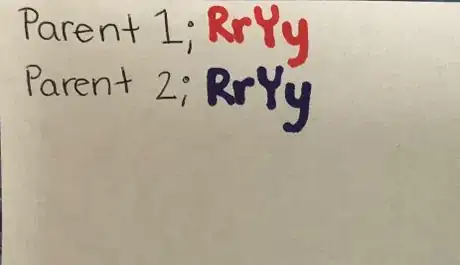 Parent 1; RrYy
Parent 2; RrYy